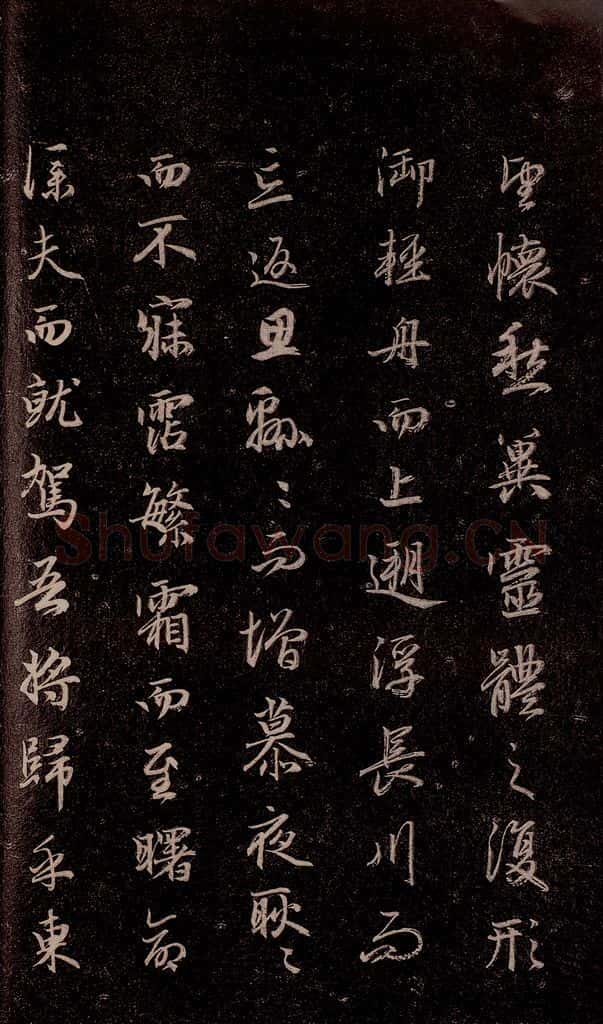 望懷愁冀靈體之復形
御輕舟而上遡浮長川而
忘返思緜〻而增慕夜耿〻
而不寐霑繁霜而至曙命
僕夫而就駕吾將歸乎東
Shufawang.CN